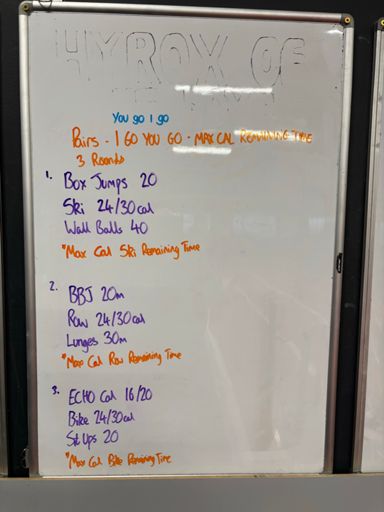 HYROX OF
You go I go
Pairs - I GO YOU GO - MAX CAL REMAINING TIME
3 Rounds
1. Box Jumps 20
Ski 24/30cal
Wall Balls 40
*Max Cal Ski Remaining Time
2. BBJ 20m
Row 24/30cal
Lunges 30m
*Max Cal Row Remaining Time
3. ECHO Cal 16/20
Bike 24/30cal
Sit Ups 20
*Max Cal Bike Remaining Time